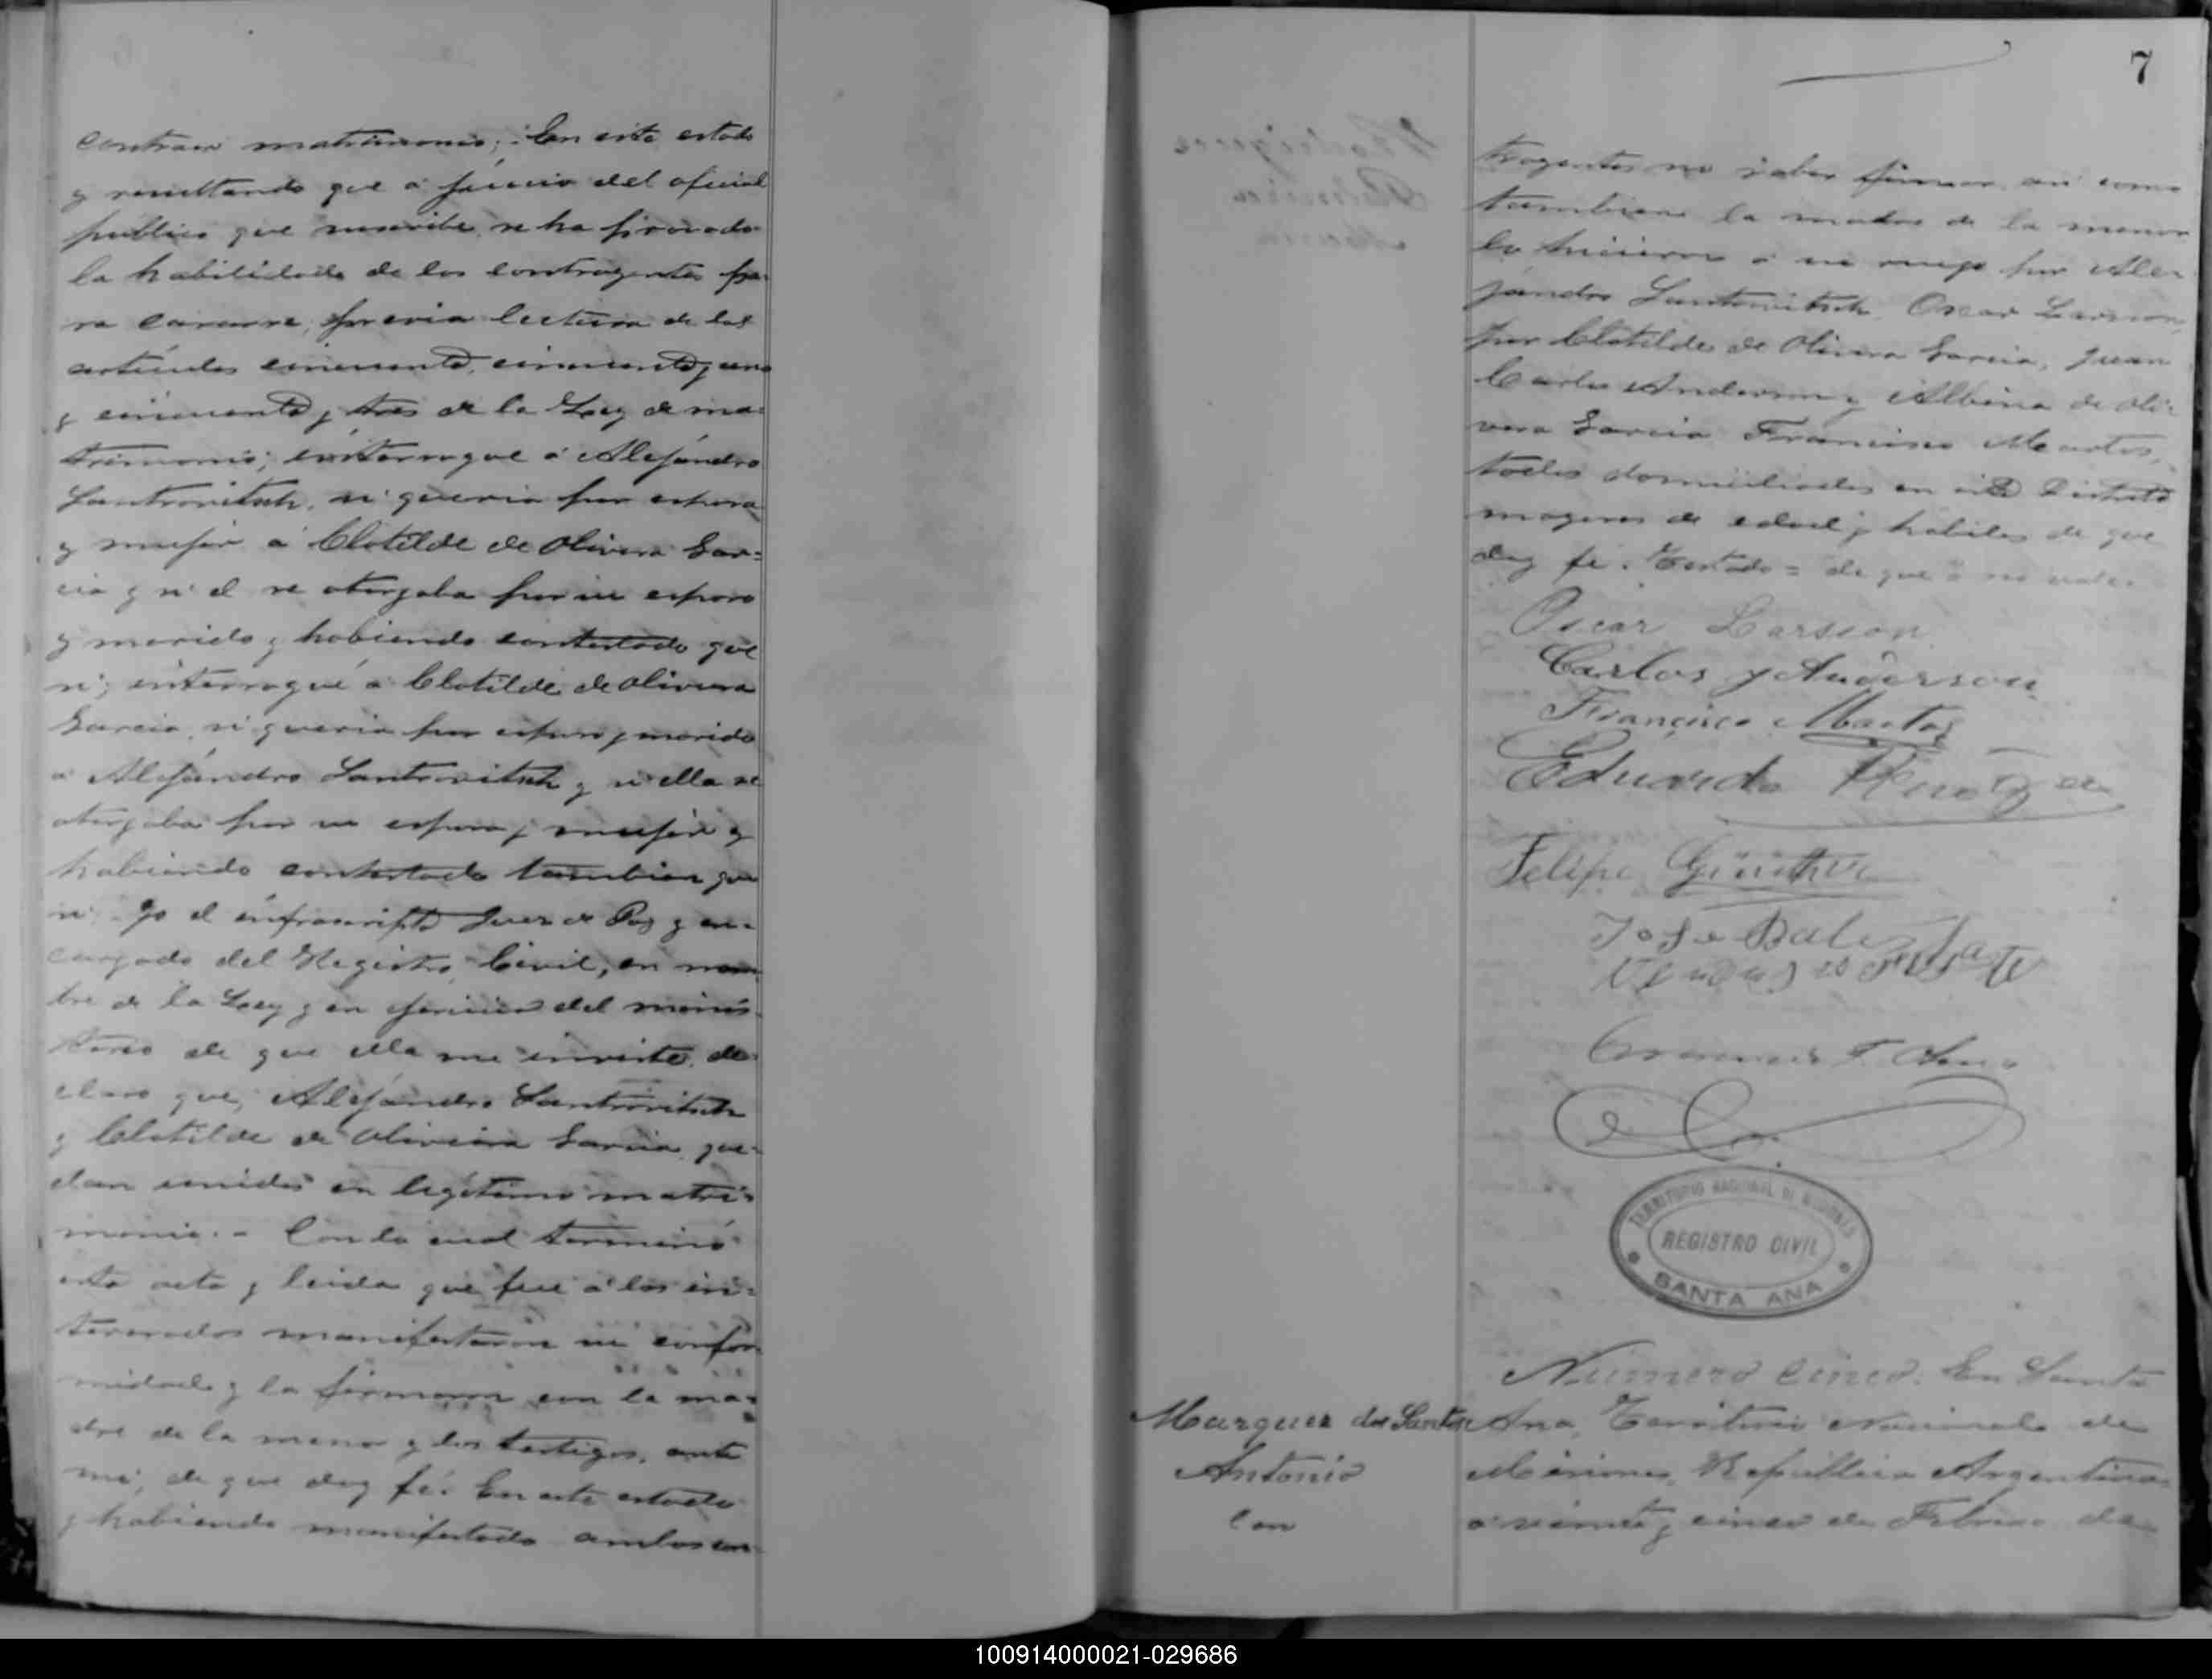 contraer matrimonio; En este estado
y resultando que á juicio del oficial
público que suscribe, se ha probado
la habilidad de los contrayentes pa-
ra casarse, previa lectura de los
artículos cincuenta, cincuenta y uno
y cincuenta y tres de la Ley de ma-
trimonio; interrogué á Alejandro
Santrovitsch, si queria por esposa
y mujer á Clotilde de Olivera Gar-
cia y si el se otorgaba por su esposo
y marido y habiendo contestado que
si; interrogué á Clotilde de Olivera
Garcia, si queria por esposo y marido
á Alejandro Santrovitsch y si ella se
otorgaba por su esposa y mujer y
habiendo contestado tambien que
si. Yo el infrascripto Juez de Paz y en-
cargado del Registro Civil, en nom
bre de la Ley y en ejercicio del minis-
terio de que ella me inviste, de-
claro que, Alejandro Santrovitsch
y Clotilde de Oliveira Garcia, que-
dan unidos en legítimo matri-
monio. - Con lo cual terminó
este acto y leida que fué á los in-
teresados manifestaron su confor-
midad y la firmaron con la ma-
dre de la menor y los testigos, ante
mi, de que doy fé. En este estado
y habiendo manifestado ambos con-
7
trayentes no saber firmar asi como
tambien la madre de la menor
lo hicieron á su ruego por Ale-
jandro Santrovitsch Oscar Larsson,
por Clotilde de Olivera Garcia, Juan
Carlos Anderson y Albina de Oli-
vera Garcia Francisco Martos,
todos domiciliados en este Distrito
mayores de edad y habiles de que
doy fé. Testado = de que = no vale.
Oscar Larsson
Carlos y Anderson
Francisco Martos
Eduardo
Felipe Günther
Jose
TERRITORIO NACIONAL DE MISIONES
REGISTRO CIVIL
SANTA ANA
Marquez dos Santos
Antonio
con
Número Cinco. En Santa
Ana, Territorio Nacional de
Misiones, República Argentina
á veinte y cinco de Febrero de
100914000021-029686